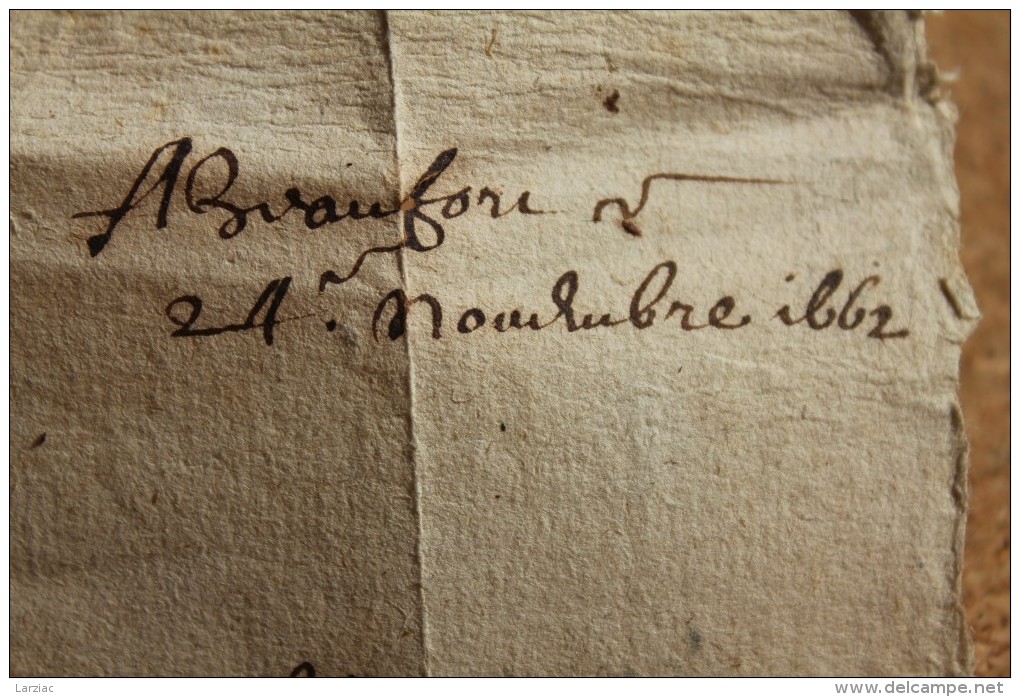 A Beaufort ce
24.e Novembre 1662
Larziac
www.delcampe.net